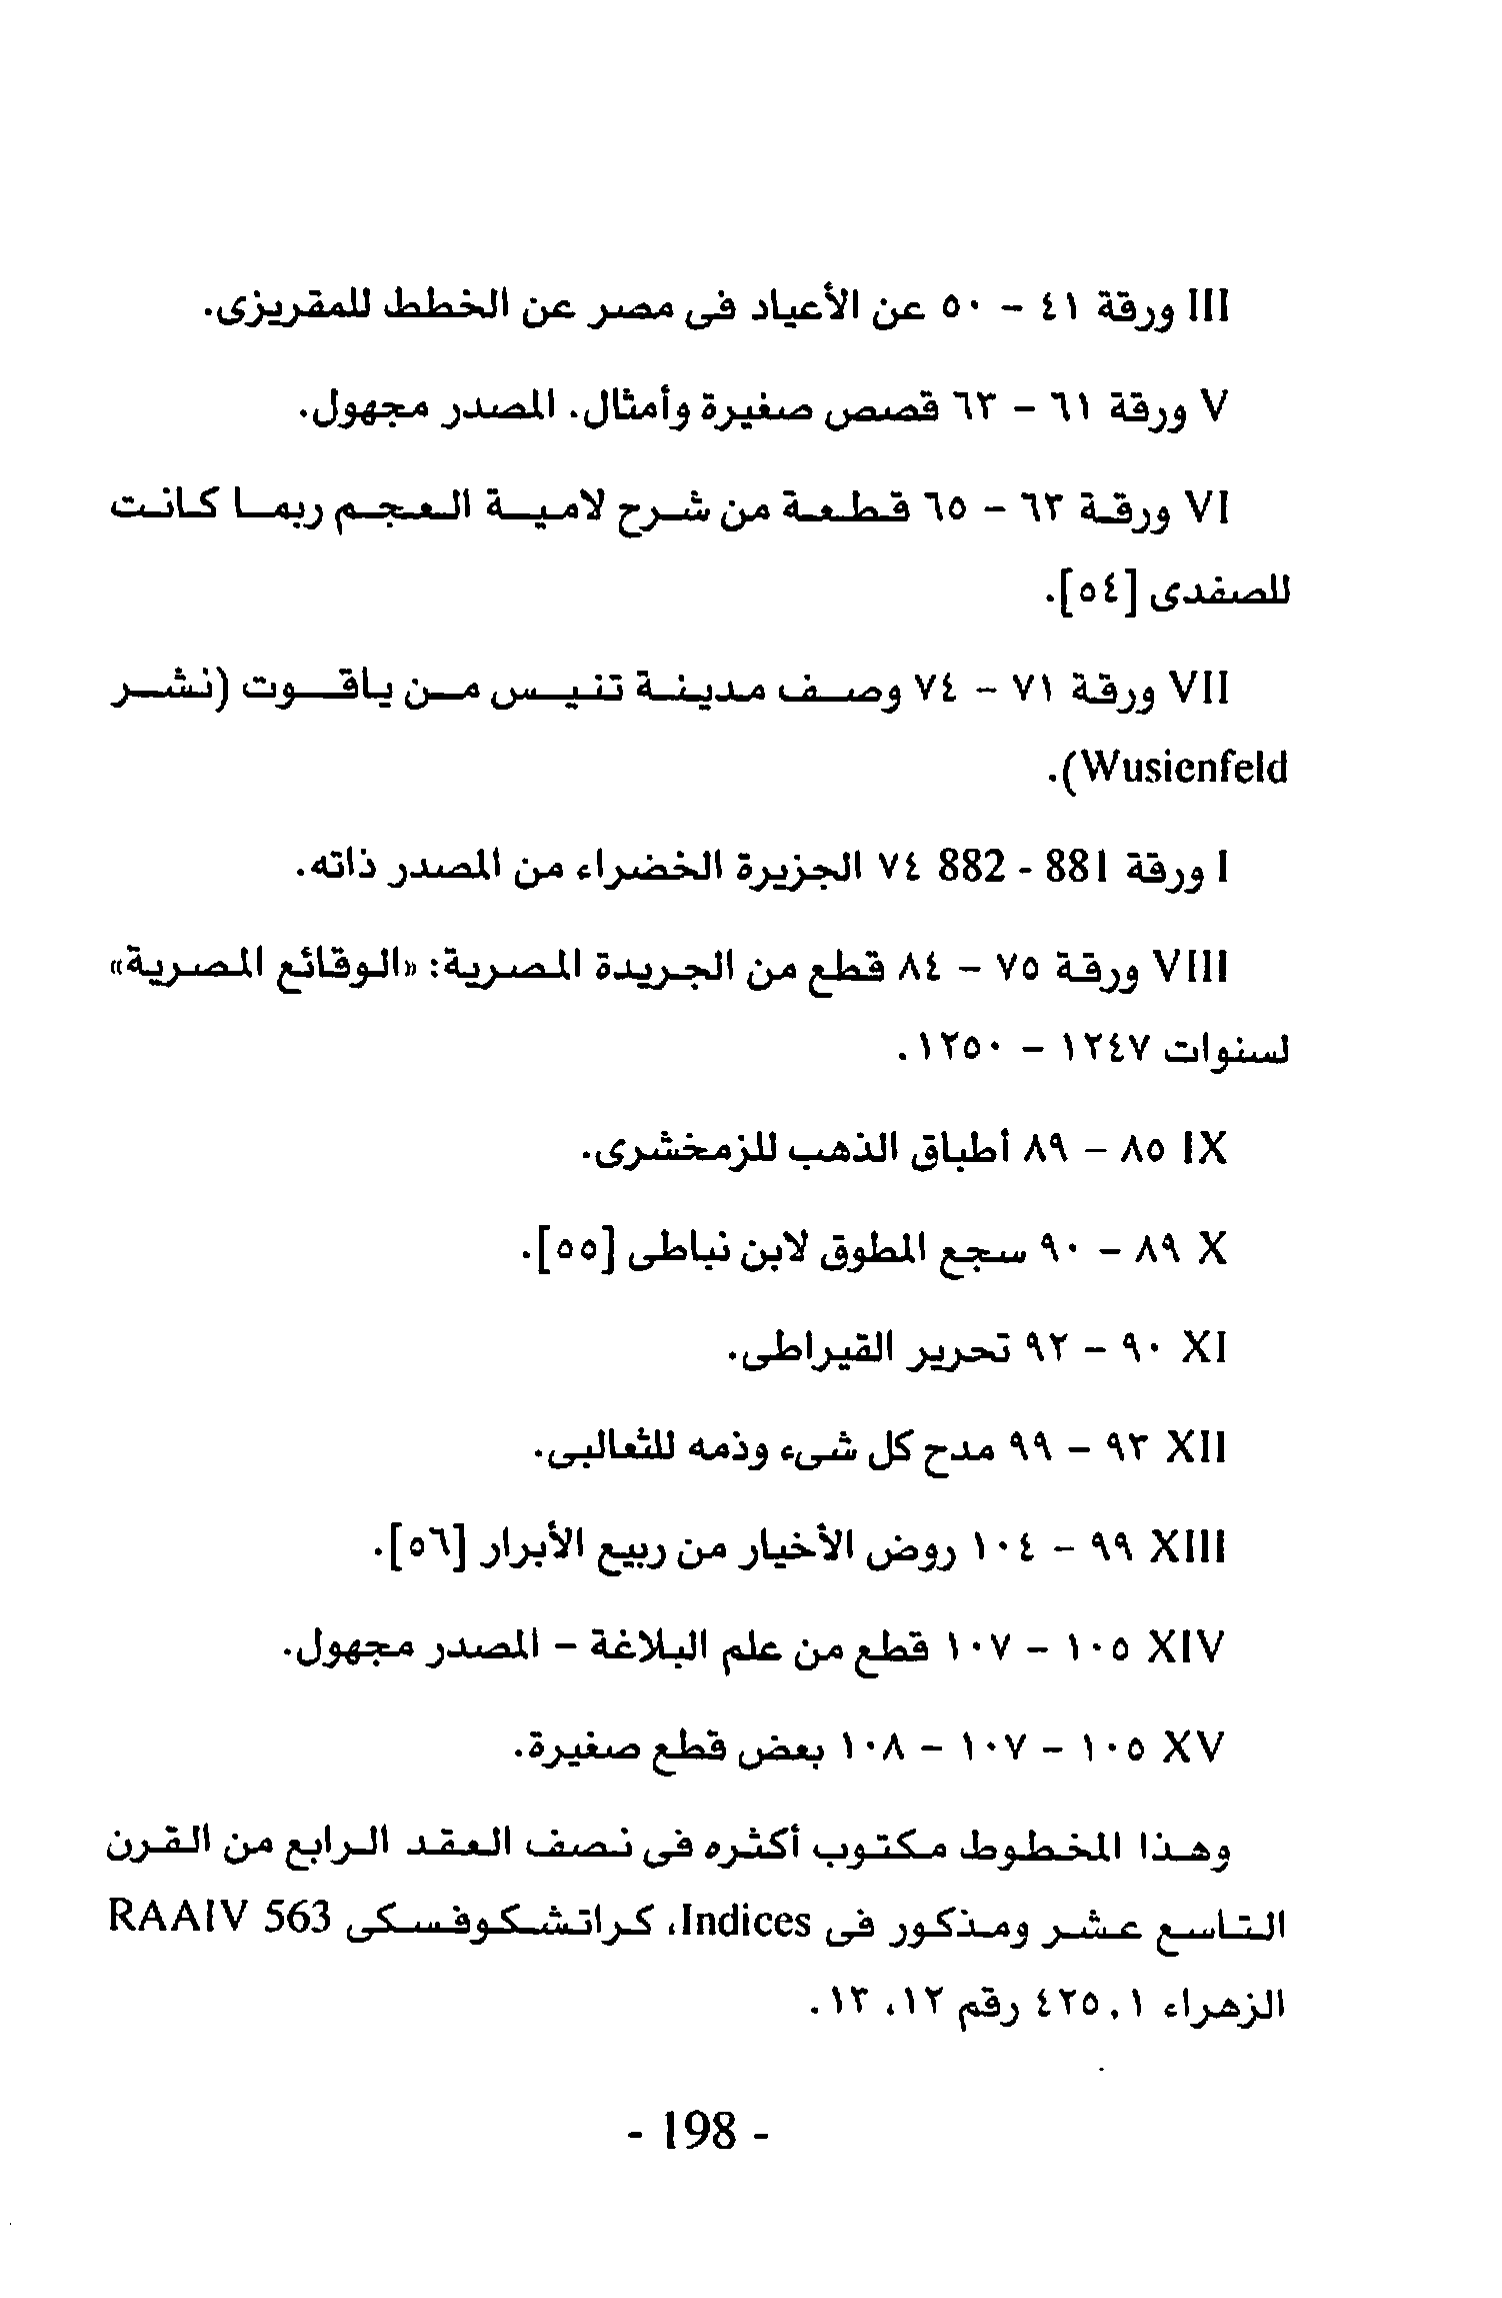 III ورقة ٤١ – ٥٠ عن الأعياد فى مصر عن الخطط للمقريزى.
V ورقة ٦١ – ٦٣ قصص صغيرة وأمثال. المصدر مجهول.
VI ورقة ٦٣ – ٦٥ قطعة من شرح لامية العجم ربما كانت
للصفدى [٥٤].
VII ورقة ٧١ – ٧٤ وصف مدينة تنيس من ياقوت (نشر
Wusienfeld).
I ورقة 881 - 882 ٧٤ الجزيرة الخضراء من المصدر ذاته.
VIII ورقة ٧٥ – ٨٤ قطع من الجريدة المصرية: «الوقائع المصرية»
لسنوات ١٢٤٧ – ١٢٥٠.
IX ٨٥ – ٨٩ أطباق الذهب للزمخشرى.
X ٨٩ – ٩٠ سجع المطوق لابن نباطى [٥٥].
XI ٩٠ – ٩٢ تحرير القيراطى.
XII ٩٣ – ٩٩ مدح كل شىء وذمه للثعالبى.
XIII ٩٩ – ١٠٤ روض الأخيار من ربيع الأبرار [٥٦].
XIV ١٠٥ – ١٠٧ قطع من علم البلاغة – المصدر مجهول.
XV ١٠٥ – ١٠٧ – ١٠٨ بعض قطع صغيرة.
وهذا المخطوط مكتوب أكثره فى نصف العقد الرابع من القرن
التاسع عشر ومذكور فى Indices، كراتشكوفسكى RAAIV 563
الزهراء ٤٢٥,١ رقم ١٢، ١٣.
- 198 -